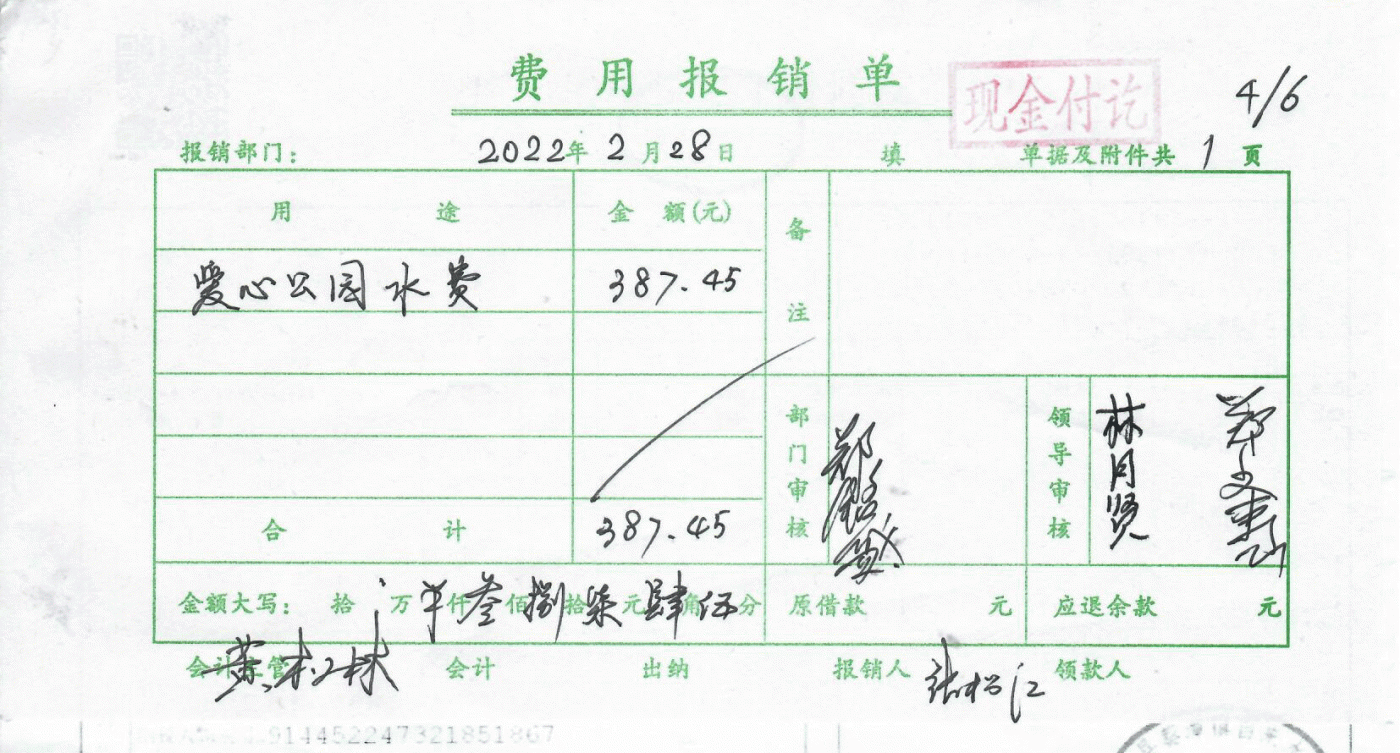 费用报销单
现金付讫
4/6
报销部门: 2022年 2月28日 填 单据及附件共 1 页
用途 金额(元) 备注
爱心公园水费 387.45
部门审核 郑 领导审核 林月贤 郑
合计 387.45
金额大写: 拾万仟叁佰捌拾柒元肆角伍分 原借款 元 应退余款 元
会计主管 会计 出纳 报销人 张松江 领款人
914452247321851867